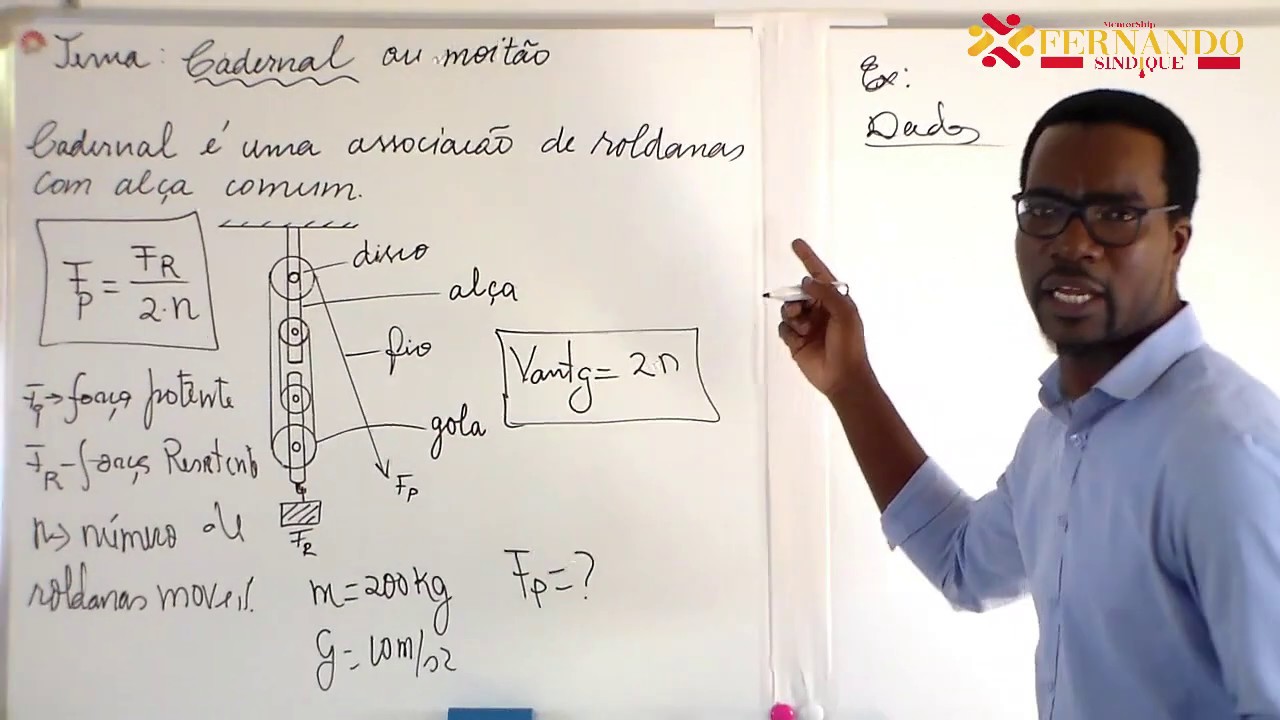 Tema: Cadernal ou moitão
Cadernal é uma associacão de roldanas
com alça comum.
Fp = FR / 2·n
disco
alça
fio
gola
Fp
FR
Vantg = 2·n
Fp → força potente
FR - força Resistente
n → número de
roldanas moveis.
m = 200 kg
g = 10 m/s2
Fp = ?
Ex:
Dados
MentorShip
FERNANDO
SINDIQUE